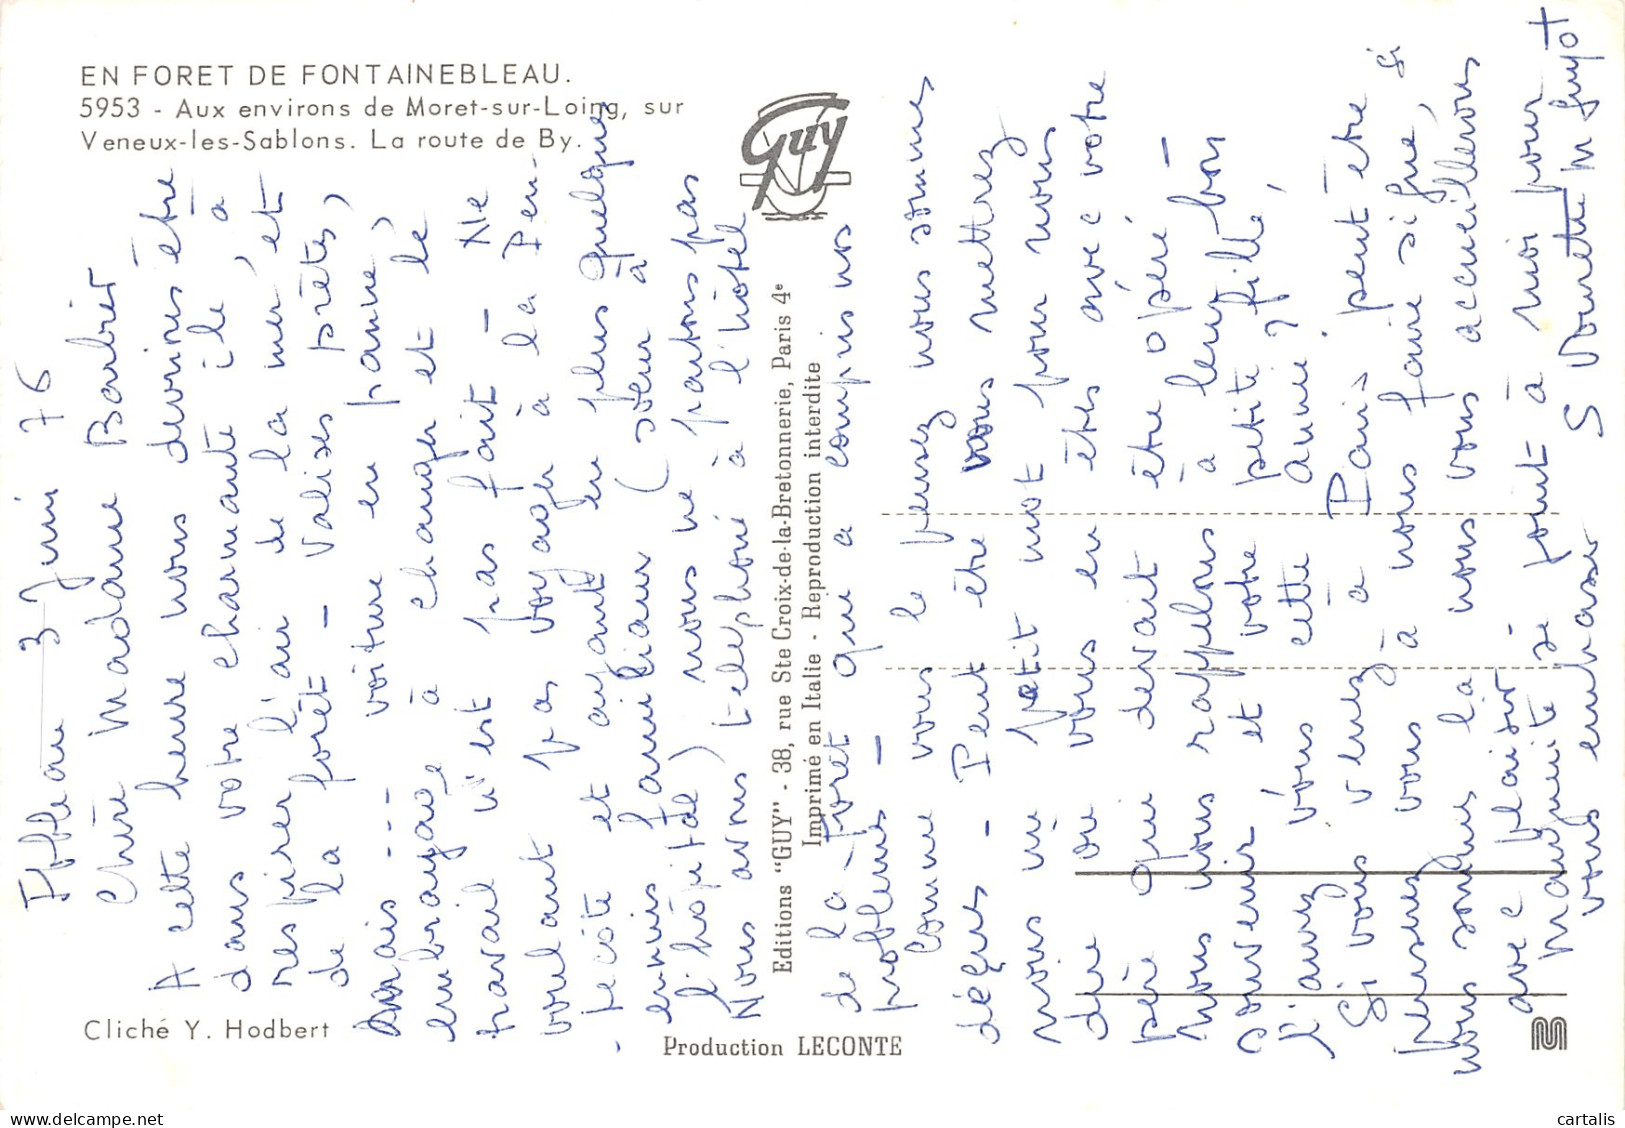 EN FORET DE FONTAINEBLEAU.
5953 - Aux environs de Moret-sur-Loing, sur
Veneux-les-Sablons. La route de By.
Guy
Editions "GUY" - 38, rue Ste Croix-de-la-Bretonnerie, Paris 4e
Imprimé en Italie - Reproduction interdite
Cliché Y. Hodbert
Production LECONTE
Fbleau 3 Juin 76
Chère Madame Barbier
A cette heure nous devrions être
dans votre charmante île, à
respirer l'air de la mer, et
de la forêt - valises prêtes,
mais --- voiture en panne,
embrayage à changer et le
travail n'est pas fait - Ne
voulant pas voyager à la Pen-
-tecôte et ayant en plus quelques
ennuis familiaux (soeur à
l'hôpital) nous ne partons pas
Nous avons telephoné à l'hôtel
de la Forêt qui a compris nos
problemes -
Comme vous le pensez nous sommes
déçus - Peut être nous mettrez
vous un petit mot pour nous
dire où vous en êtes avec votre
père qui devait être opéré -
Nous nous rappelons à leur bon
souvenir et votre petite fille,
l'aurez vous cette année ?
Si vous venez à Paris peut être
penserez vous à nous faire signe, si
nous sommes là nous vous accueillerons
avec plaisir -
Marguerite se joint à moi pour
vous embrasser S Vourette M Guyot
cartalis